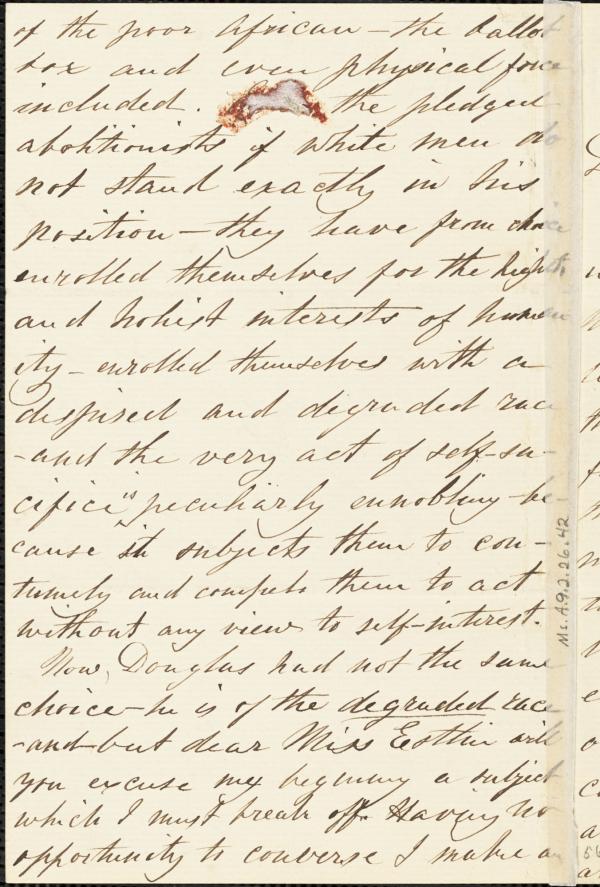 of the poor African – the ballot
box and even physical force
included. the pledged
abolitionists if white men do
not stand exactly in his
position – they have from choice
enrolled themselves for the right,
and noblest interests of human
ity – enrolled themselves with a
despised and degraded race
– and the very act of self-sa-
cifice is peculiarly ennobling – be
cause it subjects them to con-
tumely and compels them to act
without any view to self-interest.
Now, Douglas had not the same
choice – he is of the degraded race
– and – but dear Miss Esther will
you excuse my beginning a subject
which I must break off. Having no
opportunity to converse I make a
Ms.A.9.2.26.42